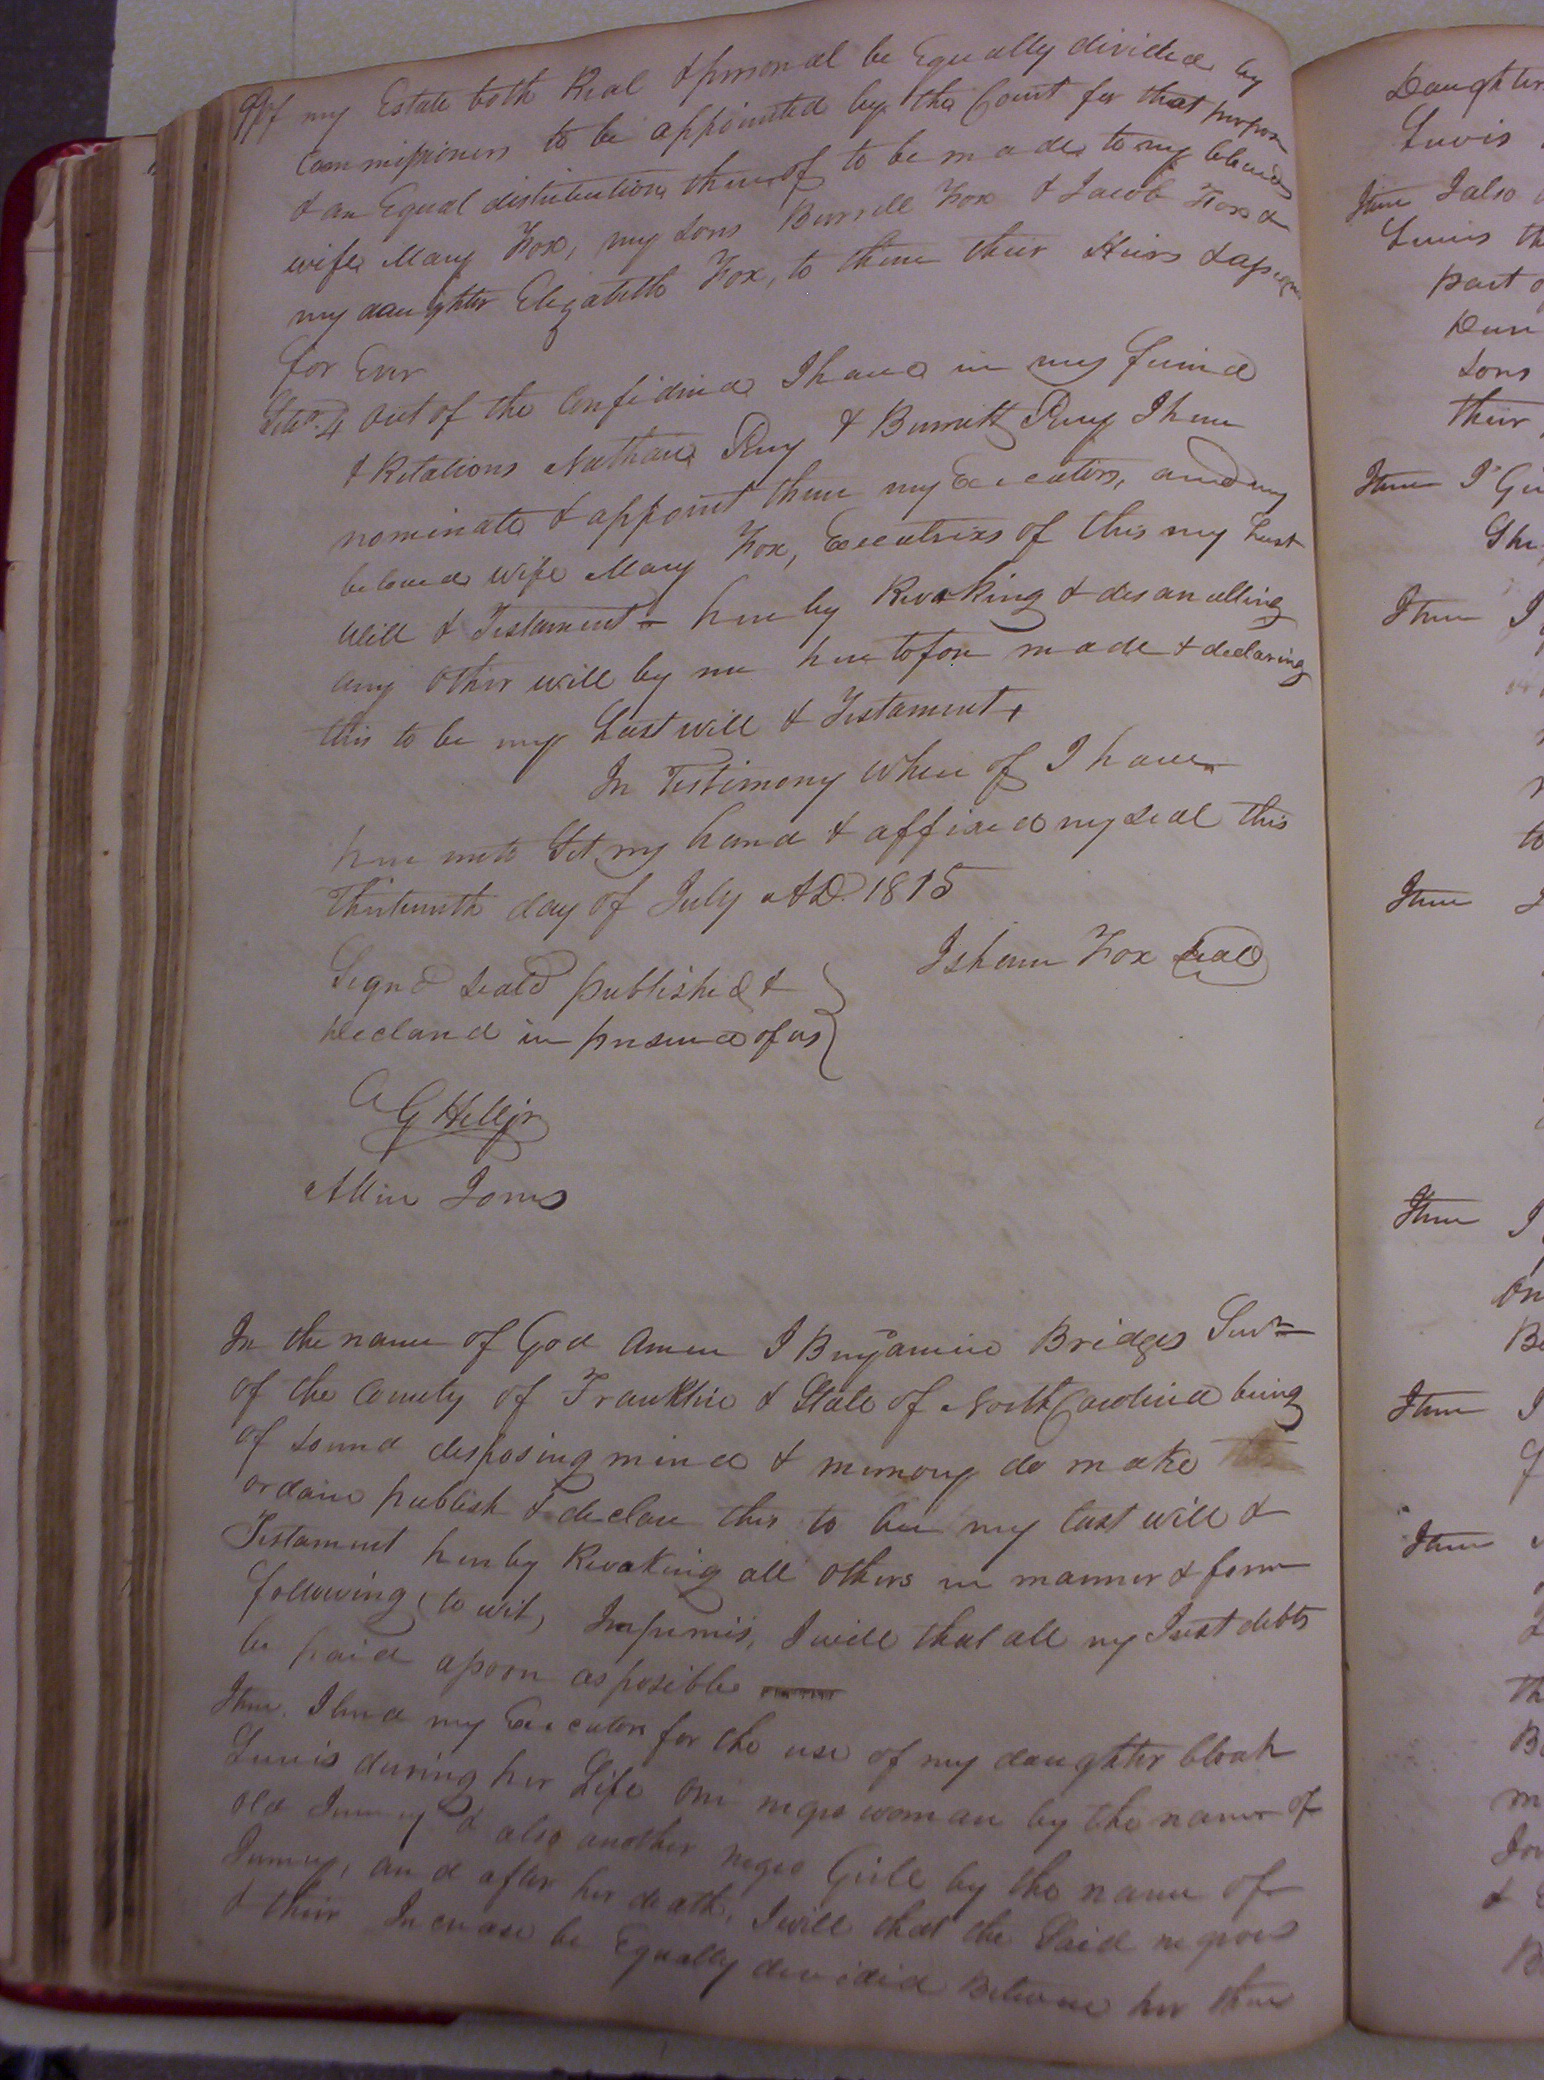 of my Estate both Real & personal be Equally divided by
Commissioners to be appointed by the Court for that purpose
& an Equal distribution thereof to be made to my beloved
wife Mary Fox, my sons Burrell Fox & Jacob Fox &
my daughter Elizabeth Fox, to them their Heirs & assigns
for Ever
4 Out of the Confidence I have in my friend
& Relations Nathan & I here
nominate & appoint them my Executors, and my
beloved wife Mary Fox, Executrixs of this my Last
Will & Testament - hereby Revoking & disanulling
any other will by me heretofore made & declaring
this to be my Last will & Testament,
In Testimony where of I have
here unto Set my hand & affixed my seal this
Thirteenth day of July AD. 1815
Isham Fox Seal
Signd Seald published &
declared in presence of us
A G Hill jr
Allin Jones
In the name of God Amen I Benjamin Bridges Senr
of the County of Franklin & State of North Carolina being
of sound disposing mind & memory do make
ordain publish & declare this to be my last will &
Testament hereby Revoking all others in manner & form
following, to wit, Impremis, I will that all my Just debts
be paid as soon as posible
Item. I lend my Executors for the use of my daughter
Lewis during her Life one negro woman by the name of
old & also another negro Girle by the name of
and after her death, I will that the Said negroes
& their Increase be Equally divided Between her three
Daughter
Lewis
Item I also
Lewis th
part o
sons
their
Item I Gi
She
Item I
to
Item
Item I
on
Be
Item I
Item
th
B
m
&
B